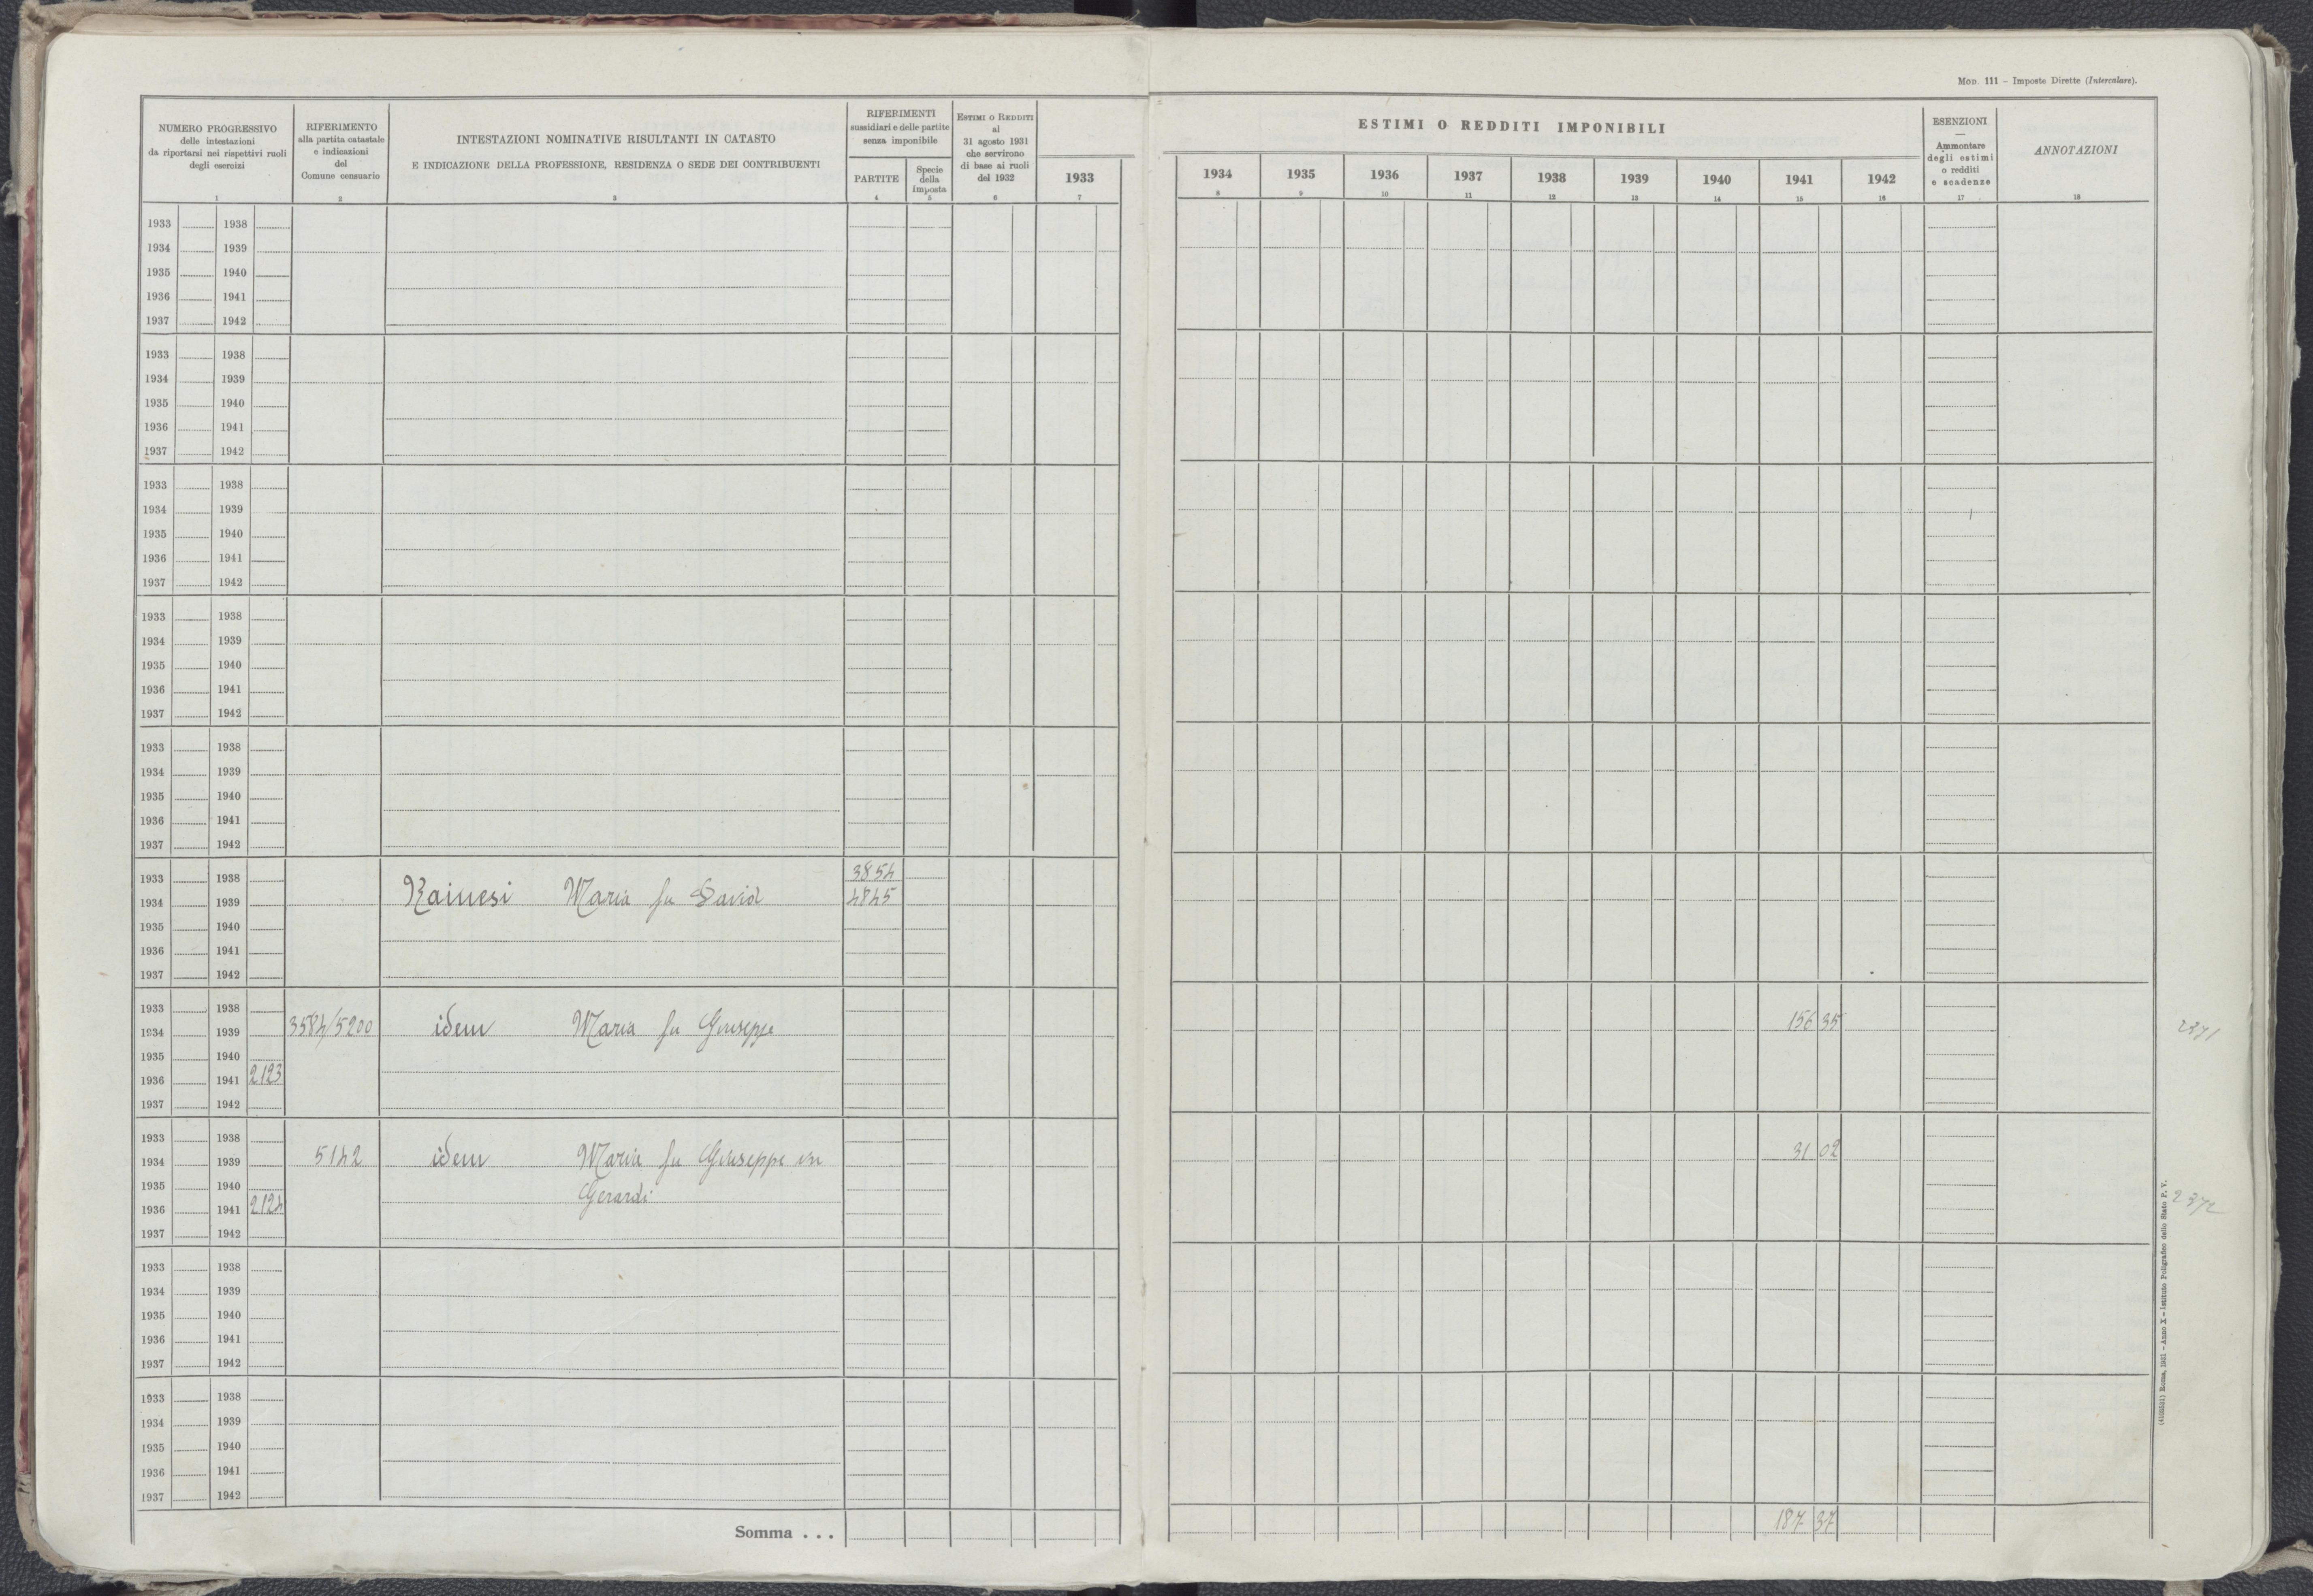 Mod. 111 – Imposte Dirette (Intercalare).
NUMERO PROGRESSIVO
delle intestazioni
da riportarsi nei rispettivi ruoli
degli esercizi
1
RIFERIMENTO
alla partita catastale
e indicazioni
del
Comune censuario
2
INTESTAZIONI NOMINATIVE RISULTANTI IN CATASTO
E INDICAZIONE DELLA PROFESSIONE, RESIDENZA O SEDE DEI CONTRIBUENTI
3
RIFERIMENTI
sussidiari e delle partite
senza imponibile
PARTITE
4
Specie
della
imposta
5
Estimi o Redditi
al
31 agosto 1931
che servirono
di base ai ruoli
del 1932
6
ESTIMI O REDDITI IMPONIBILI
1933 1934 1935 1936 1937 1938 1939 1940 1941 1942
7 8 9 10 11 12 13 14 15 16
ESENZIONI
—
Ammontare
degli estimi
o redditi
e scadenze
17
ANNOTAZIONI
18
1933 1938
1934 1939
1935 1940
1936 1941
1937 1942
1933 1938
1934 1939
1935 1940
1936 1941
1937 1942
1933 1938
1934 1939
1935 1940
1936 1941
1937 1942
1933 1938
1934 1939
1935 1940
1936 1941
1937 1942
1933 1938
1934 1939
1935 1940
1936 1941
1937 1942
1933 1938 3854
1934 1939 Rainesi Maria fu David 4845
1935 1940
1936 1941
1937 1942
1933 1938
1934 1939 3584/5200 idem Maria fu Giuseppe 156 35 2371
1935 1940
1936 1941 2123
1937 1942
1933 1938
1934 1939 5142 idem Maria fu Giuseppe in 31 02
1935 1940 Gerardi
1936 1941 2124 2372
1937 1942
1933 1938
1934 1939
1935 1940
1936 1941
1937 1942
1933 1938
1934 1939
1935 1940
1936 1941
1937 1942
Somma . . . 187 37
Roma, 1931 – Anno X – Istituto Poligrafico dello Stato P. V.